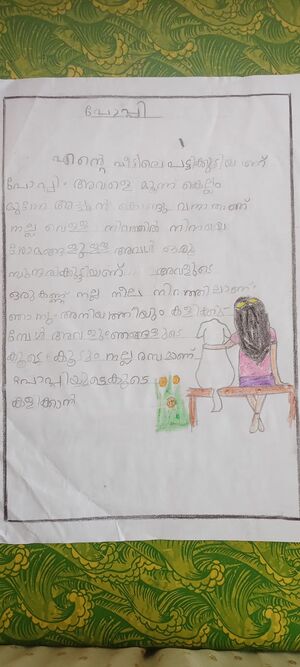 പോപ്പി
എന്റെ വീട്ടിലെ പട്ടിക്കുട്ടിയാണ്
പോപ്പി. അവളെ മൂന്ന് കൊല്ലം
മുമ്പേ അച്ഛൻ കൊണ്ടു വന്നതാണ്
നല്ല വെള്ള നിറത്തിൽ നിറയെ
രോമങ്ങളുള്ള അവൾ ഒരു
സുന്ദരിക്കുട്ടിയാണ് അവളുടെ
ഒരു കണ്ണ് നല്ല നീല നിറത്തിലാണ്
ഞാനും അനിയത്തിയും കളിക്കു
മ്പോൾ അവളും ഞങ്ങളുടെ
കൂടെ കൂടും നല്ല രസമാണ്
പോപ്പിയുടെകൂടെ
കളിക്കാൻ